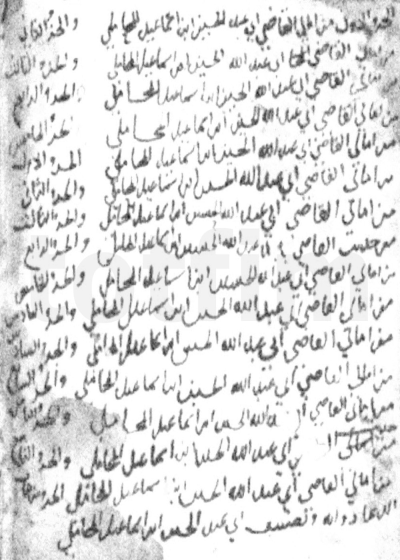 الجزء الاول من امالي القاضي ابي عبد الله الحسين ابن اسماعيل المحاملي والجزء الثاني
من امالي القاضي ابي عبد الله الحسين ابن اسماعيل المحاملي والجزء الثالث
من امالي القاضي ابي عبد الله الحسين ابن اسماعيل المحاملي الجزء الرابع
من امالي القاضي ابي عبد الله الحسين ابن اسماعيل المحاملي الجزء الخامس
من امالي القاضي ابي عبد الله الحسين ابن اسماعيل المحاملي الجزء الاول
من امالي القاضي ابي عبد الله الحسين ابن اسماعيل المحاملي والجزء الثاني
من امالي القاضي ابي عبد الله الحسين ابن اسماعيل المحاملي والجزء الثالث
من حديث القاضي ابي عبد الله الحسين ابن اسماعيل المحاملي والجزء الرابع
من امالي القاضي ابي عبد الله الحسين ابن اسماعيل المحاملي والجزء الخامس
من امالي القاضي ابي عبد الله الحسين ابن اسماعيل المحاملي والجزء السادس
من امالي القاضي ابي عبد الله الحسين ابن اسماعيل المحاملي والجزء
من امالي القاضي ابي عبد الله الحسين ابن اسماعيل المحاملي والجزء
من امالي القاضي عبد الله الحسين ابن اسماعيل المحاملي والجزء
من امالي ابي عبد الله الحسين ابن اسماعيل المحاملي والجزء
من امالي القاضي ابي عبد الله الحسين ابن اسماعيل المحاملي الجزء
الدعا دوايه وتصنيف ابي عبد الله الحسين ابن اسماعيل المحاملي